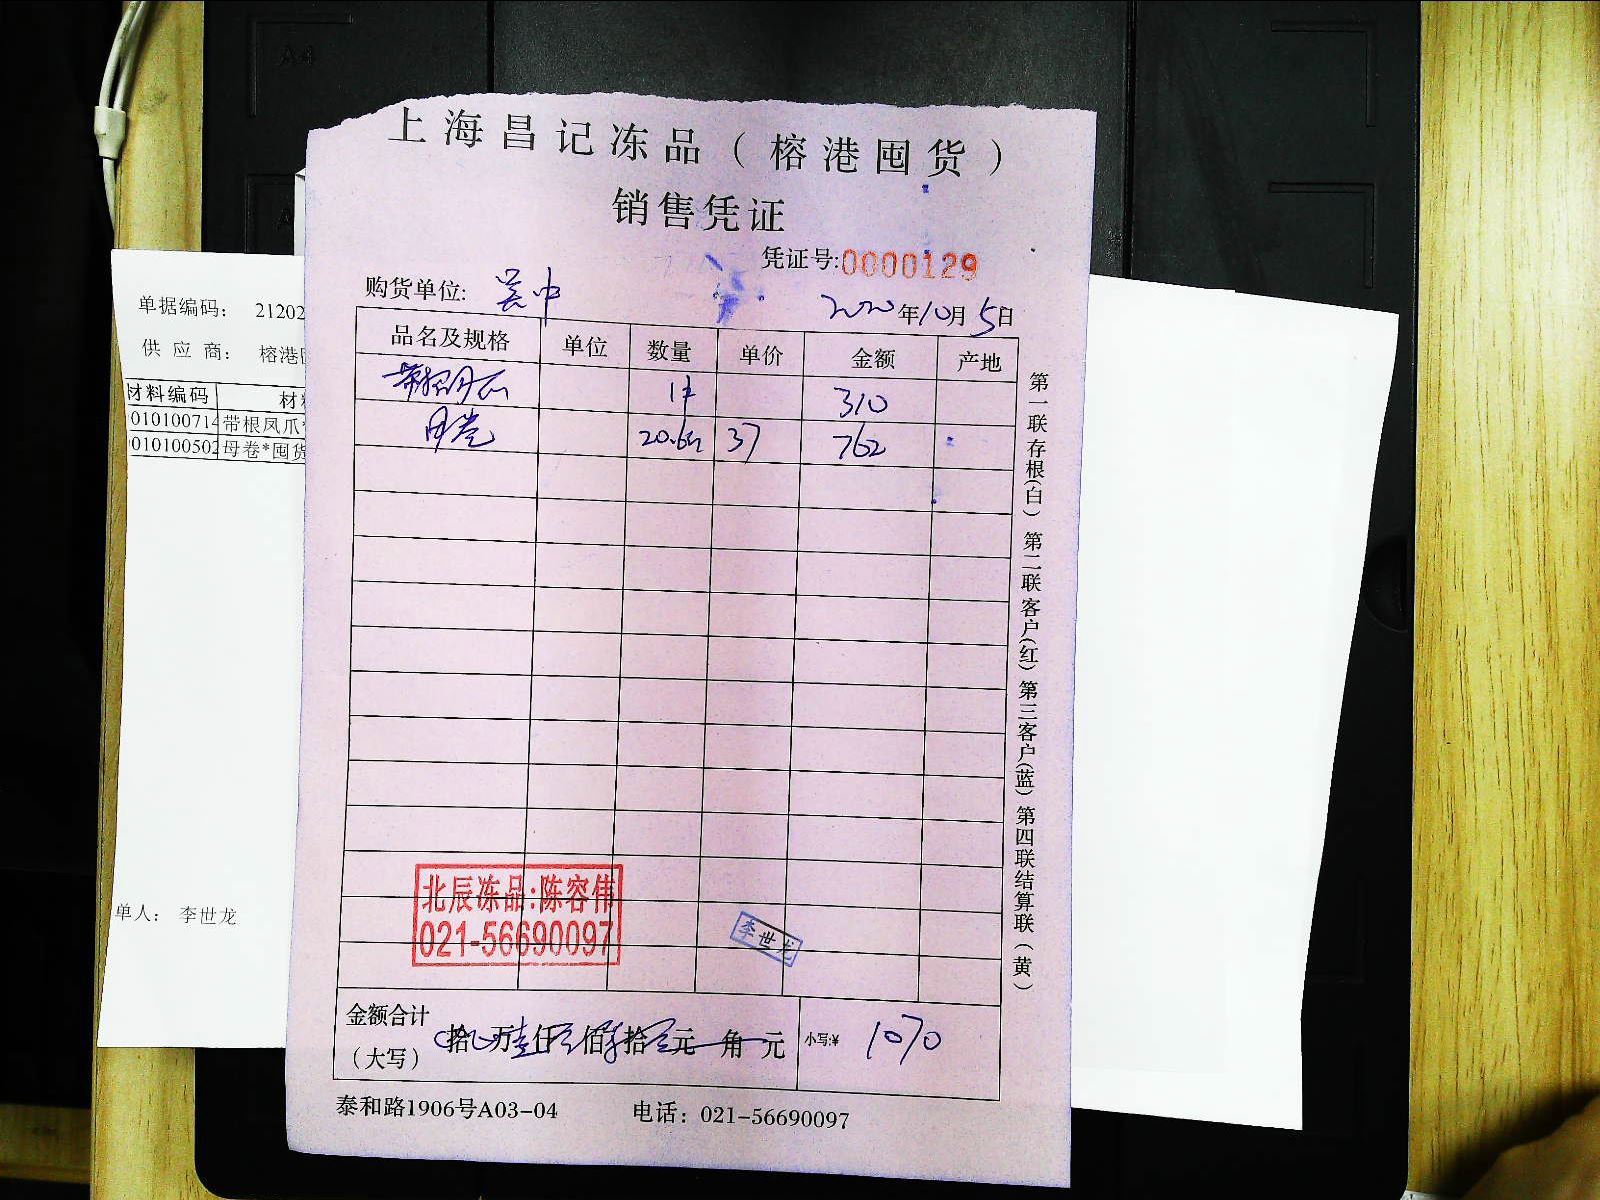 上海昌记冻品（榕港囤货）
销售凭证
凭证号:0000129
购货单位: 吴中 2020年10月5日
品名及规格 单位 数量 单价 金额 产地
带根凤爪 1件 310
母卷 20.6斤 37 762
北辰冻品:陈容伟
021-56690097
李世龙
金额合计
（大写） 拾 万壹仟 佰柒拾 元 角 元 小写:¥ 1070
泰和路1906号A03-04 电话：021-56690097
第一联存根(白) 第二联客户(红) 第三客户(蓝) 第四联结算联(黄)
单据编码： 21202
供应商： 榕港
材料编码 材
010100714 带根凤爪*
010100502 母卷*囤货
单人： 李世龙